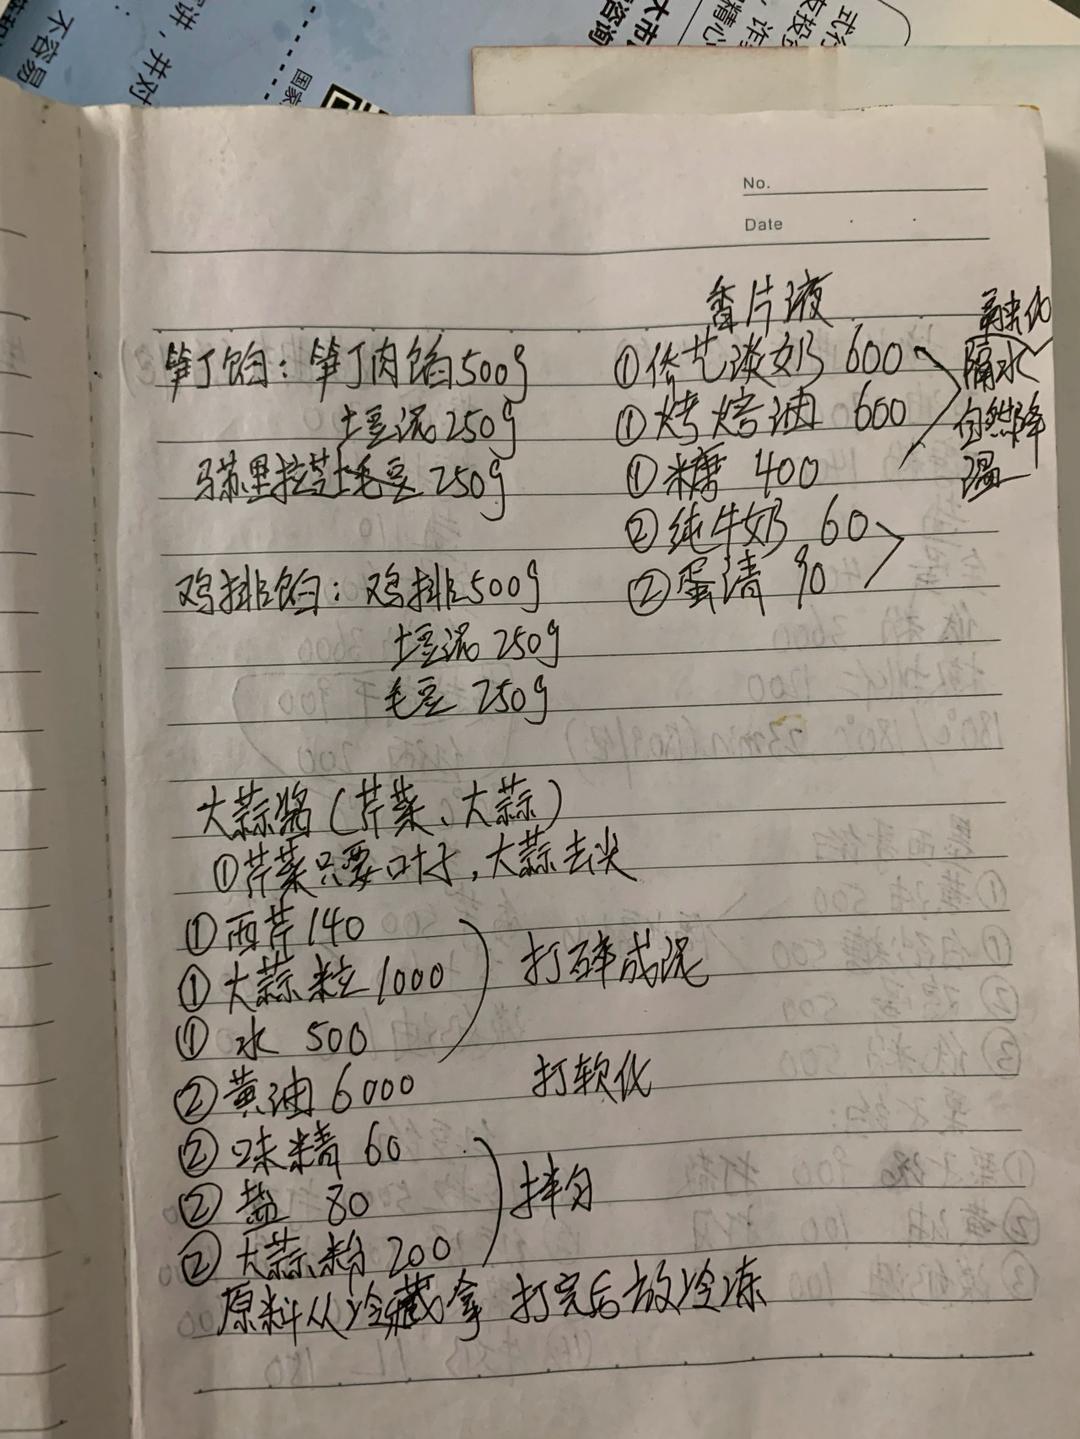 式行
大市
咨询
精心
讲，并对
不容易
国家
No.
Date
笋丁馅：笋丁肉馅500g
土豆泥250g
马苏里拉芝士毛豆250g
鸡排馅：鸡排500g
土豆泥250g
毛豆250g
香片液
①侨艺谈奶 600
①烤焙油 600
①糖 400
②纯牛奶 60
②蛋清 90
融化
隔水
自然降
温
大蒜酱（芹菜、大蒜）
①芹菜只要叶子，大蒜去尖
①西芹140
①大蒜粒1000
①水 500
打碎成泥
②黄油6000 打软化
②味精 60
②盐 80
②大蒜粉200
拌匀
原料从冷藏拿 打完后放冷冻